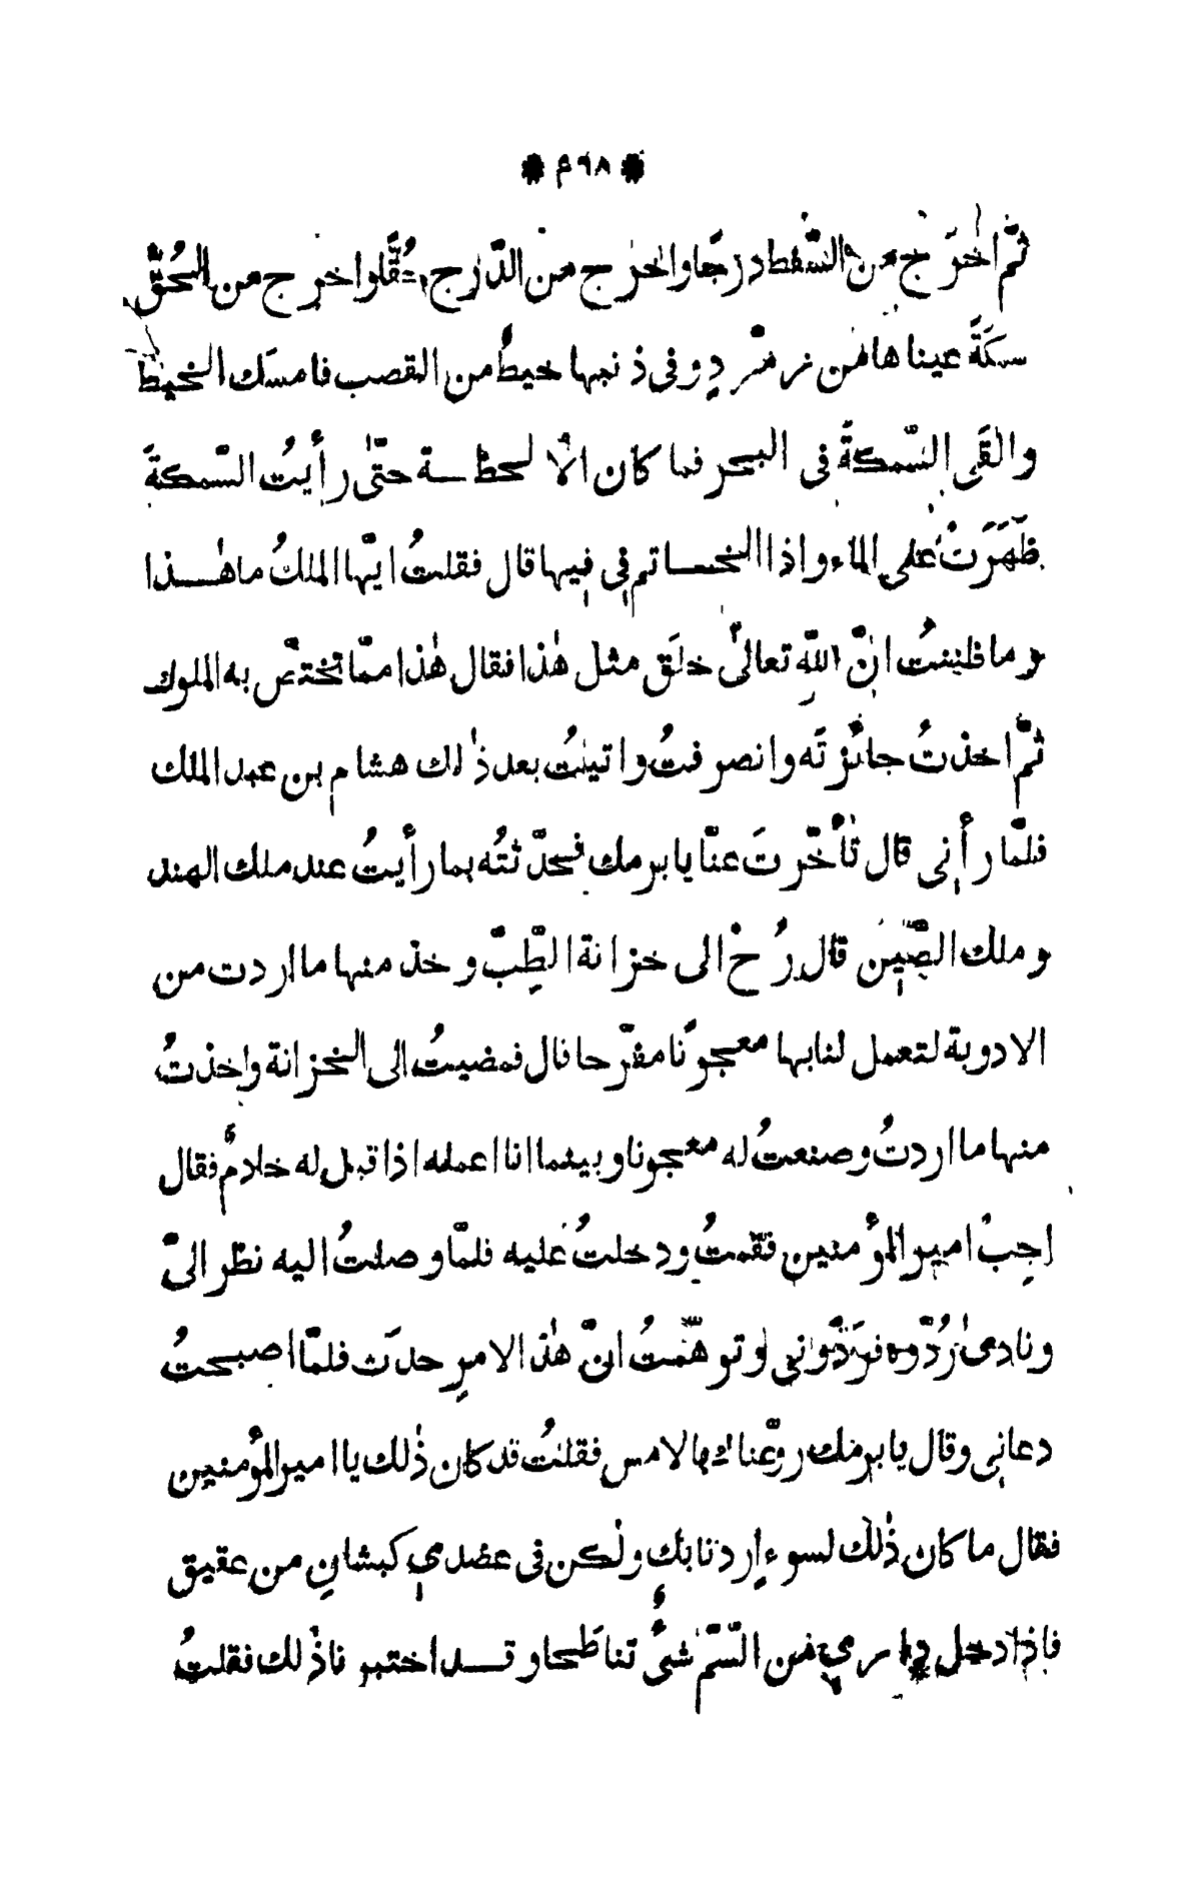 * ٤٩٨ *
ثمّ اخرَج من السّفط درجًا واخرج من الدّرج حُقًّا واخرج من الحُقّ
سمكَةً عيناها من زمرّدٍ وفى ذنبها خيطٌ من القصب فامسَك الخيط
والقَى السّمكةً فى البحر فما كان الاّ لحظـــة حتّى رأيتُ السّمكةَ
ظَهَرَتْ على الماء واذا الخـــاتم فى فيها قال فقلتُ ايّها الملكُ ما هٰـــذا
وما ظننتُ انّ اللّه تعالىٰ خلَق مثل هٰذا فقال هٰذا ممّا تختصّ به الملوك
ثمّ اخذتُ جائزتَه وانصرفتُ واتيتُ بعد ذٰلك هشام بن عبد الملك
فلمّا رأنى قال تأخّرتَ عنّا يا برمك فحدّثتُه بما رأيتُ عند ملك الهند
وملك الصّين قال رُحْ الى خزانة الطّبّ وخذ منها ما اردت من
الادوية لتعمل لنا بها معجونًا مفرّحا قال فمضيتُ الى الخزانة واخذتُ
منها ما اردتُ وصنعتُ له معجونا وبينما انا اعمله اذا قبل له خادمٌ فقال
اجِبْ امير المؤمنين فقمتُ ودخلتُ عليه فلمّا وصلتُ اليه نظر الىّ
ونادى رُدّوه فردّونى وتوهّمتُ انّ هٰذا الامر حدَث فلمّا اصبحتُ
دعانى وقال يا برمك روّعناك بالامس فقلتُ قد كان ذٰلك يا امير المؤمنين
فقال ما كان ذٰلك لسوء اردنا بك ولٰكن فى عضدى كبشان من عقيق
فاذا دخل دارى من السّمّ شئٌ تناطحا وقـــد اختبرنا ذٰلك فقلتُ